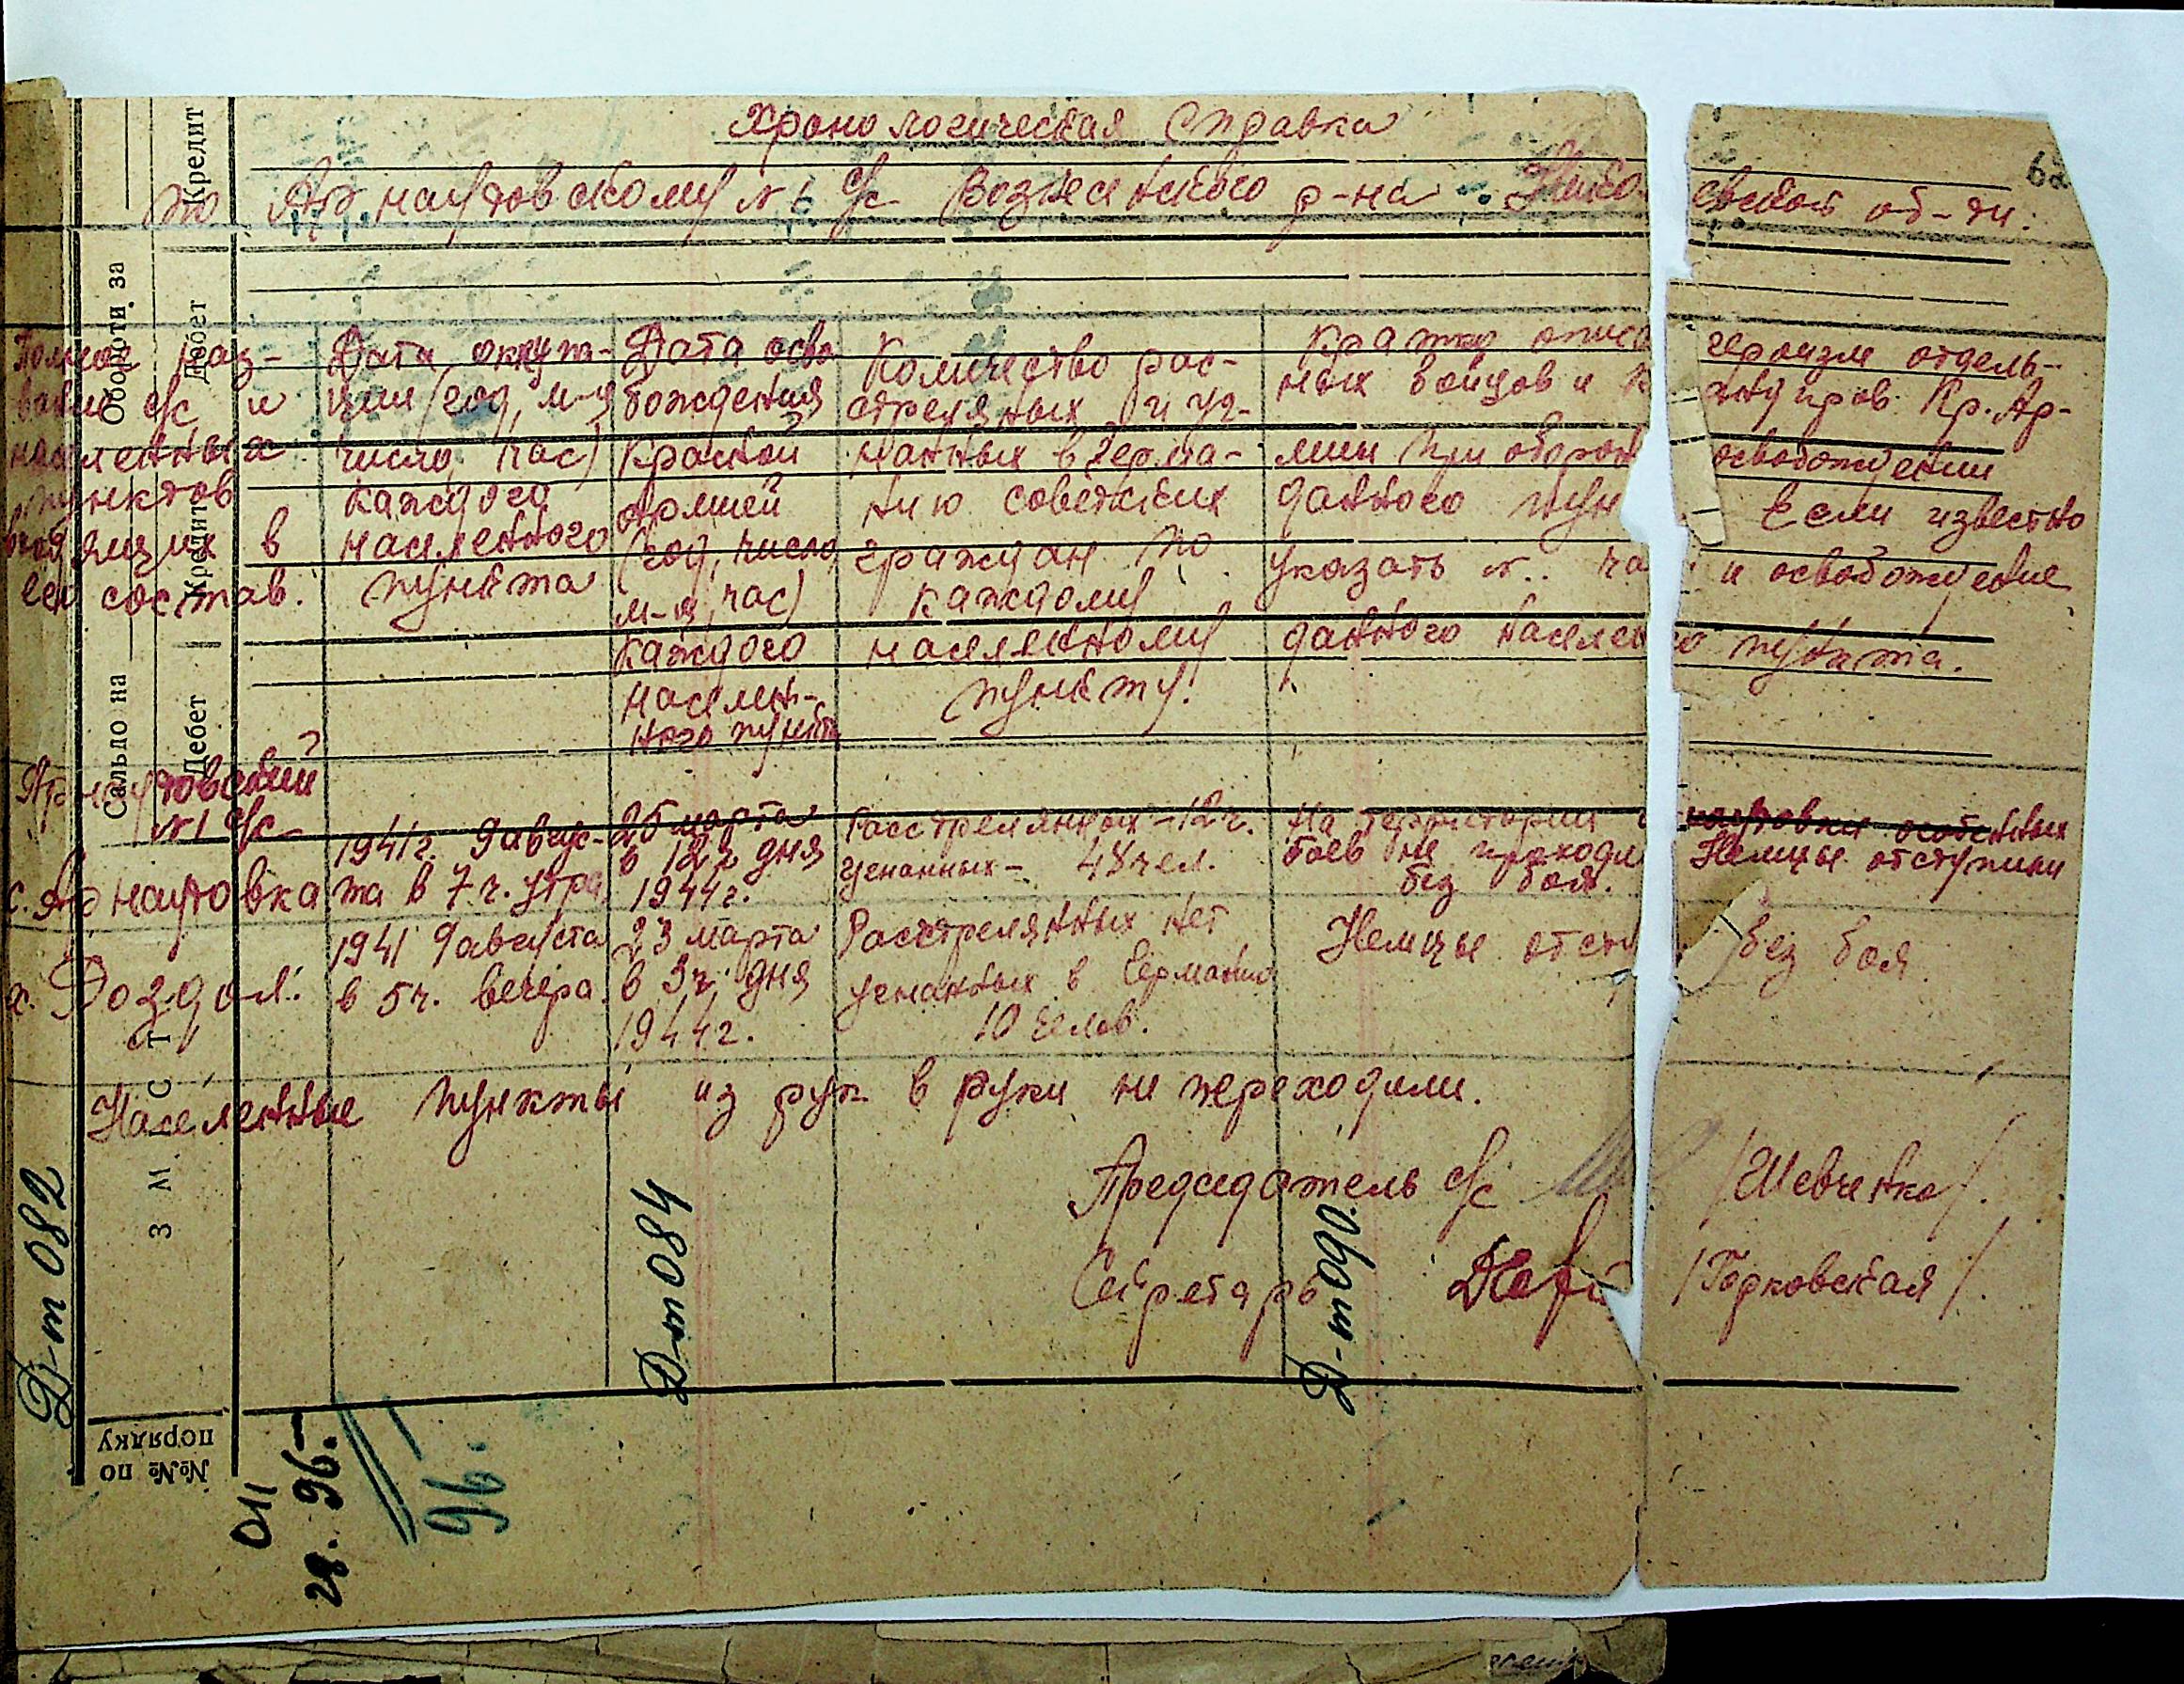 Хронологическая справка
по Арнаутовскому №1 с/с Вознесенского р-на Нико евской об-ти.
62
Полное наз-
вание с/с и
населенных
пунктов
входящих в
его состав.
Дата оккупа-
ции (год, м-ц
число, час)
каждого
населенного
пункта
Дата осво
бождения
Красной
Армией
(год, число
м-ц, час)
каждого
населен-
ного пункта
Количество рас-
стрелянных и уг-
нанных в Герма-
нию советских
граждан по
каждому
населенному
пункту.
Кратко описа героизм отдель-
ных бойцов и к андиров. Кр. Ар-
мии при оборон освобождении
данного пун Если известно
указать №.. ча и освобождение
данного населен о пункта.
Арнаутовский
№1 с/с
с. Арнаутовка
1941г. 9 авгус-
та в 7 ч. утра
25 марта
в 12 ч дня
1944г.
Расстрелянных - 12ч.
угнанных - 48 чел.
На территории наутовки особенных
боев не проходи Немцы отступили
без боя.
х. Роздол.
1941 9 августа
в 5ч. вечера.
23 марта
в 3ч. дня
1944г.
Расстрелянных нет
угнанных в Германию
10 челов.
Немцы отсту без боя
Населенные пункты из рук в руки не переходили.
Председатель с/с /Шевченко/.
Секретарь /Горковская/.
Кредит
Обороти за
Дебет
Кредит
Сальдо на
Дебет
З М І С Т
№№ по
порядку
Д-т 082
Д-т 084
Д-т 090.
011
96-
96.